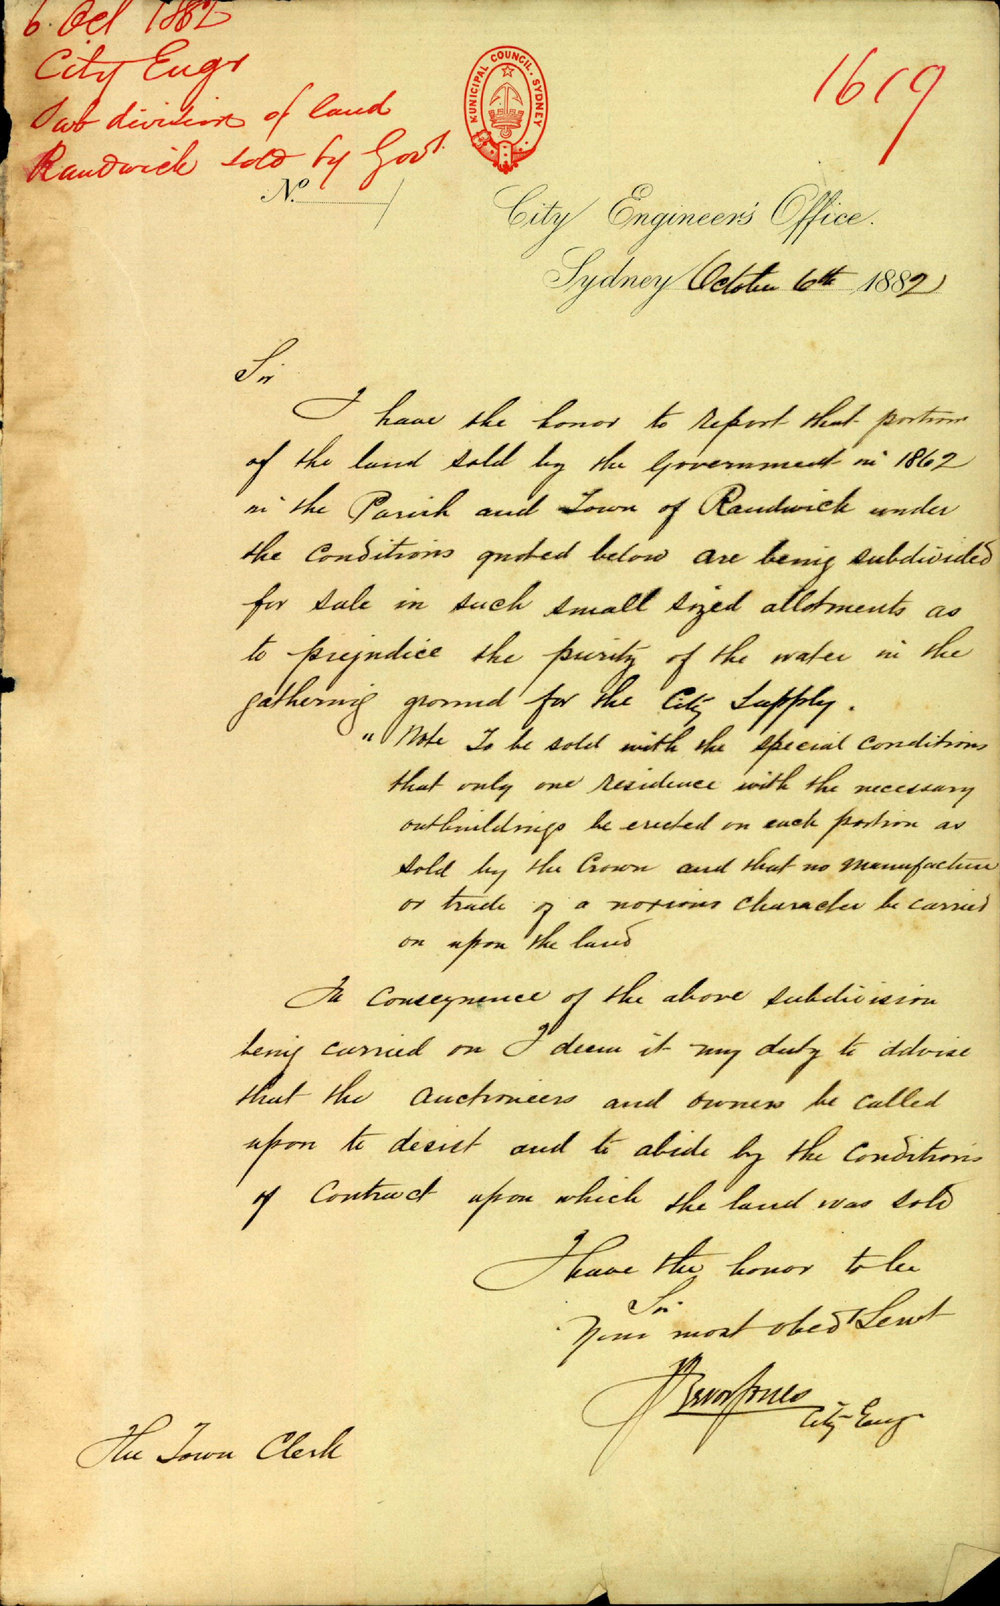 6 Oct 1882
City Engr
Sub division of land
Randwick sold by Govt.
1619
MUNICIPAL COUNCIL. SYDNEY
No.
City Engineer's Office.
Sydney October 6th 1882
Sir
I have the honor to report that portions
of the land sold by the Government in 1862
in the Parish and Town of Randwick under
the Conditions quoted below are being subdivided
for sale in such small sized allotments as
to prejudice the purity of the water in the
gathering ground for the City Supply.
" Note To be sold with the special conditions
that only one residence with the necessary
outbuildings be erected on each portion as
sold by the Crown and that no manufacture
or trade of a noxious character be carried
on upon the land
In consequence of the above subdivision
being carried on I deem it my duty to advise
that the Auctioneers and owners be called
upon to desist and to abide by the Conditions
of Contract upon which the land was sold
I have the honor to be
Sir
Your most obed Servt
Trevor Jones
City Engr
The Town Clerk